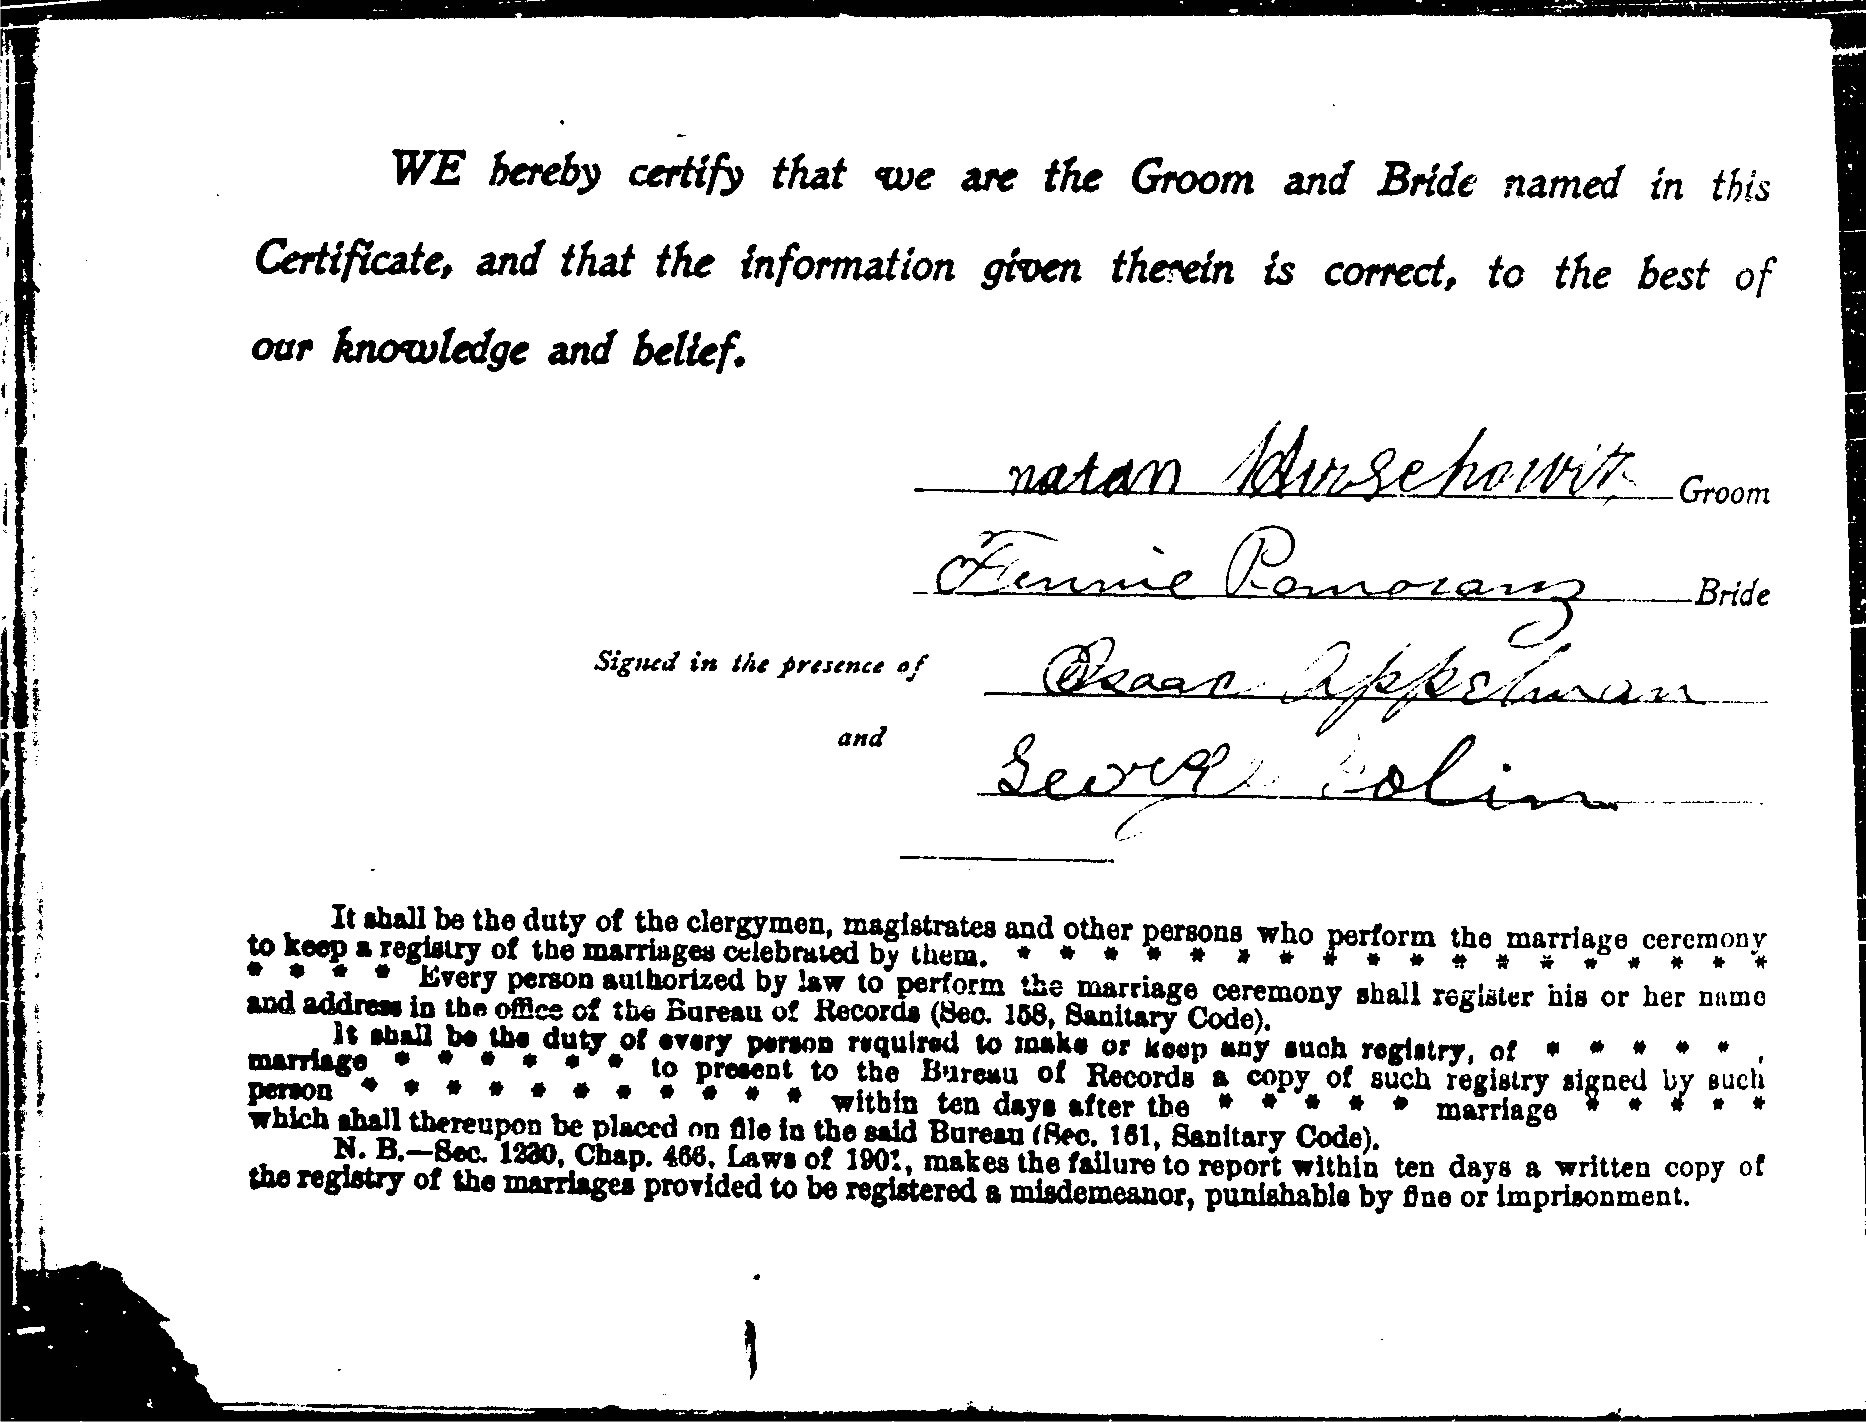 WE hereby certify that we are the Groom and Bride named in this
Certificate, and that the information given therein is correct, to the best of
our knowledge and belief.
natan Hirschowitz Groom
Fennie Pomoranz Bride
Signed in the presence of Isaac Appelman
and George
It shall be the duty of the clergymen, magistrates and other persons who perform the marriage ceremony
to keep a registry of the marriages celebrated by them. * * * * * * * * * * * * * * * * * *
* * * * Every person authorized by law to perform the marriage ceremony shall register his or her name
and address in the office of the Bureau of Records (Sec. 158, Sanitary Code).
It shall be the duty of every person required to make or keep any such registry, of * * * * * ,
marriage * * * * * * to present to the Bureau of Records a copy of such registry signed by such
person * * * * * * * * * * * within ten days after the * * * * * marriage * * * * *
which shall thereupon be placed on file in the said Bureau (Sec. 161, Sanitary Code).
N. B.—Sec. 1230, Chap. 466, Laws of 1901, makes the failure to report within ten days a written copy of
the registry of the marriages provided to be registered a misdemeanor, punishable by fine or imprisonment.